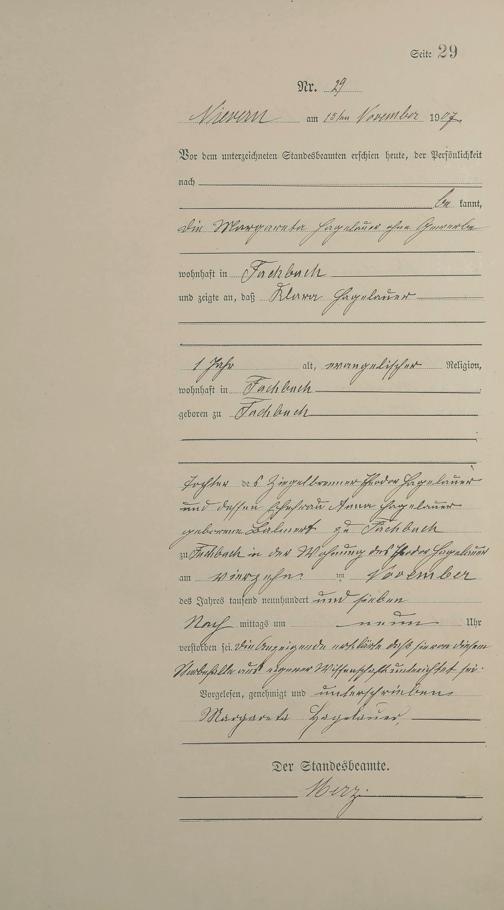 Seite 29
Nr. 29
Nievern am 15ten November 1907
Vor dem unterzeichneten Standesbeamten erschien heute, der Persönlichkeit
nach
be kannt,
die Margareta Hagelauer ohne Gewerbe
wohnhaft in Fachbach
und zeigte an, daß Klara Hagelauer
1 Jahr alt, evangelischer Religion,
wohnhaft in Fachbach
geboren zu Fachbach
Tochter des Ziegelbrenner Theodor Hagelauer
und dessen Ehefrau Anna Hagelauer
geborene Balmert zu Fachbach
zu Fachbach in der Wohnung des Theodor Hagelauer
am vierzehn im November
des Jahres tausend neunhundert und sieben
Nach mittags um neun Uhr
verstorben sei. Die Anzeigende erklärte daß sie von diesem
Sterbefalle aus eigener Wissenschaft unterrichtet sei.
Vorgelesen, genehmigt und unterschrieben
Margareta Hagelauer
Der Standesbeamte.
Merz.